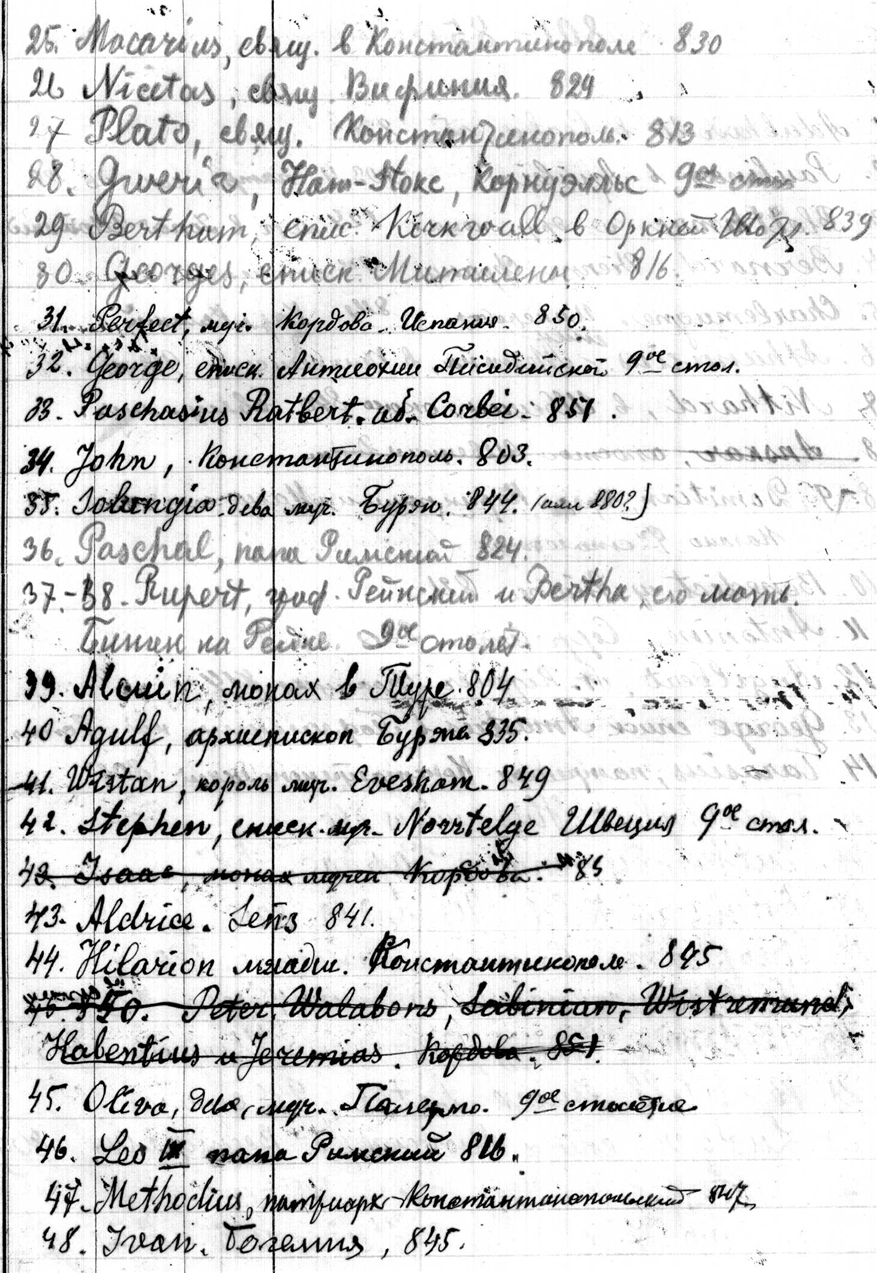 25. Macarius, свящ. в Константинополе 830
26 Nicetas, свящ. Вифиния. 824
27 Plato, свящ. Константинополь. 813
28. Gweria, Нат-Стокс, Корнуэлльс 9ое стол
29 Bertham, епис. Kirkwall в Оркней 839
30. Georges, еписк. Митилены 816.
31. Perfect, муч. Кордова. Испания. 850.
32. George, еписк. Антиохии Писидийской 9ое стол.
33. Paschasius Ratbert. аб. Corbei. 851.
34. John, Константинополь. 803.
35. Solangia. дева муч. Бурэн. 844. (или 880?)
36. Paschal, папа Римский 824.
37.-38. Rupert, граф. Рейнский и Bertha, его мать.
Бинген на Рейне. 9ое столет.
39. Alcuin, монах в Туре. 804
40 Agulf, архиепископ Буржа 835.
41. Wistan, король муч. Evesham. 849
42. Stephen, еписк. мр. Norrtelge Швеция 9ое стол.
43. Isaac, монах мучен Кордова.
43. Aldrice. Sens 841.
44. Hilarion младш. Константинополе. 845
50. Peter, Walabons, Sabinian, Wistremund,
Habentius и Jeremias. Кордова. 851.
45. Oliva, дева, муч. Палермо. 9ое столетие
46. Leo III папа Римский 816.
47. Methodius, патриарх Константинопольский 847
48. Ivan. Богемия, 845.